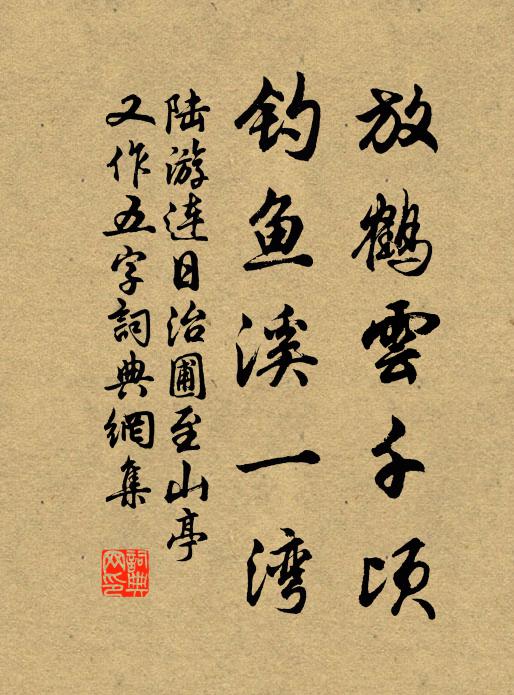 放鹤雲千顷
钓鱼溪一湾
陆游连日治圃至山亭
又作五字詞典網集
詞典網印